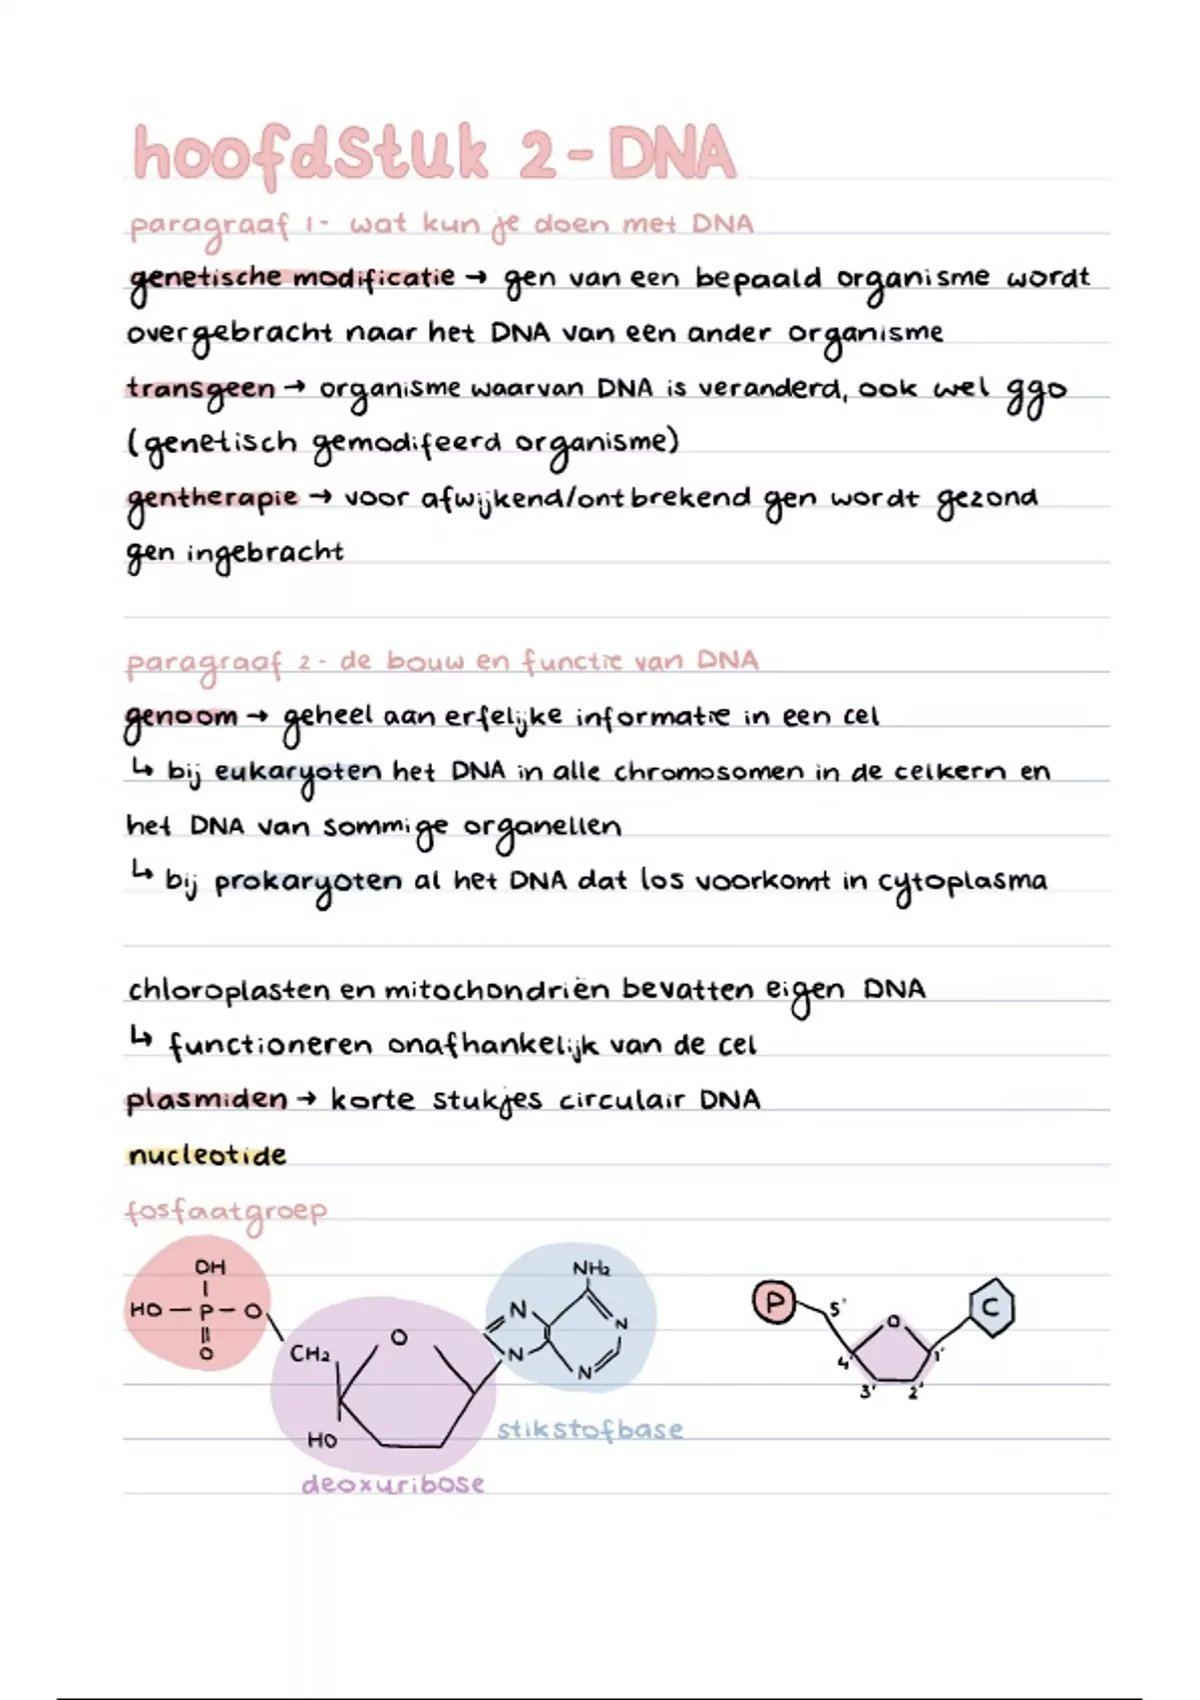 hoofdstuk 2 - DNA
paragraaf 1 - wat kun je doen met DNA
genetische modificatie → gen van een bepaald organisme wordt
overgebracht naar het DNA van een ander organisme
transgeen → organisme waarvan DNA is veranderd, ook wel ggo
(genetisch gemodifeerd organisme)
gentherapie → voor afwijkend/ontbrekend gen wordt gezond
gen ingebracht
paragraaf 2 - de bouw en functie van DNA
genoom → geheel aan erfelijke informatie in een cel
↳ bij eukaryoten het DNA in alle chromosomen in de celkern en
het DNA van sommige organellen
↳ bij prokaryoten al het DNA dat los voorkomt in cytoplasma
chloroplasten en mitochondriën bevatten eigen DNA
↳ functioneren onafhankelijk van de cel
plasmiden → korte stukjes circulair DNA
nucleotide
fosfaatgroep
OH
HO — P — O
O
CH₂
O
HO
NH₂
N
N
N
N
P
5'
O
C
4'
1'
3'
2'
stikstofbase
deoxuribose